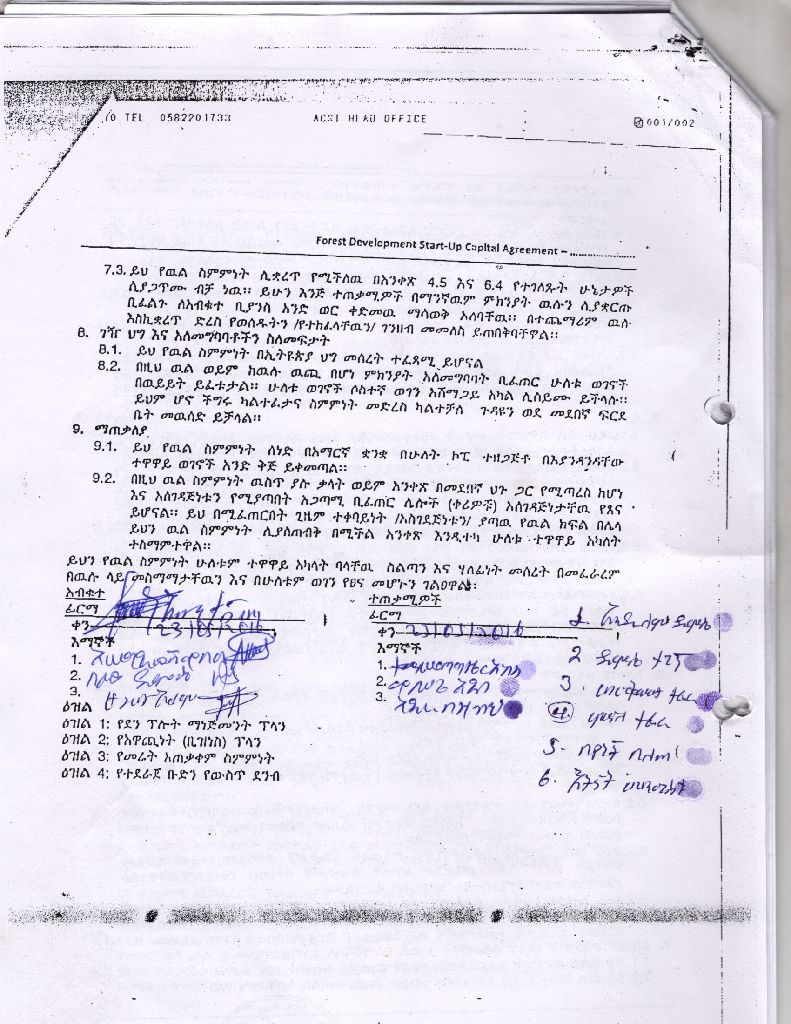 /0 TEL 0582201733 ACSI HEAD OFFICE 001/002
Forest Development Start-Up Capital Agreement – ......................
7.3. ይህ የዉል ስምምነት ሊቋረጥ የሚችለዉ በአንቀጽ 4.5 እና 6.4 የተገለጹት ሁኔታዎች
ሲያጋጥሙ ብቻ ነዉ። ይሁን እንጅ ተጠቃሚዎች በማንኛዉም ምክንያት ዉሉን ሲያቋርጡ
ቢፈልጉ ለአብቁተ ቢያንስ አንድ ወር ቀድመዉ ማሳወቅ አለባቸዉ። በተጨማሪም ዉሉ
እስኪቋረጥ ድረስ የወሰዱትን /የተከፈላቸዉን/ ገንዘብ መመለስ ይጠበቅባቸዋል።
8. ገዥ ህግ እና አለመግባባቶችን ስለመፍታት
8.1. ይህ የዉል ስምምነት በኢትዮጵያ ህግ መሰረት ተፈጻሚ ይሆናል
8.2. በዚህ ዉል ወይም ከዉሉ ዉጪ በሆነ ምክንያት አለመግባባት ቢፈጠር ሁለቱ ወገኖች
በዉይይት ይፈቱታል። ሁለቱ ወገኖች ሶስተኛ ወገን አሸማጋይ አካል ሊሰይሙ ይችላሉ።
ይህም ሆኖ ችግሩ ካልተፈታና ስምምነት መድረስ ካልተቻለ ጉዳዩን ወደ መደበኛ ፍርድ
ቤት መዉሰድ ይቻላል።
9. ማጠቃለያ
9.1. ይህ የዉል ስምምነት ሰነድ በአማርኛ ቋንቋ በሁለት ኮፒ ተዘጋጅቶ በእያንዳንዳቸው
ተዋዋይ ወገኖች አንድ ቅጅ ይቀመጣል።
9.2. በዚህ ዉል ስምምነት ዉስጥ ያሉ ቃላት ወይም አንቀጽ በመደበኛ ህጉ ጋር የሚጣረስ ከሆነ
እና አስገዳጅነቱን የሚያጣበት አጋጣሚ ቢፈጠር ሌሎች (ቀሪዎቹ) አስገዳጅነታቸዉ የጸና
ይሆናል። ይህ በሚፈጠርበት ጊዜም ተቀባይነት /አስገደጅነቱን/ ያጣዉ የዉል ክፍል በሌላ
ይህን ዉል ስምምነት ሊያስጠብቅ በሚችል አንቀጽ እንዲተካ ሁለቱ ተዋዋይ አካላት
ተስማምተዋል።
ይህን የዉል ስምምነት ሁለቱም ተዋዋይ አካላት ባላቸዉ ስልጣን እና ሃላፊነት መሰረት በመፈራረም
በዉሉ ላይ መስማማታቸዉን እና በሁለቱም ወገን የፀና መሆኑን ገልፀዋል።
አብቁተ ተጠቃሚዎች
ፊርማ ፊርማ
ቀን 23/05/2016 ቀን 23/05/2016
እማኞች እማኞች
1. 1.
2. 2.
3. 3.
2 ተገኝ
3 ተፈራ
4. ተፈራ
5.
6.
ዕዝል
ዕዝል 1: የደን ፕሎት ማነጅመንት ፕላን
ዕዝል 2: የአዋጪነት (ቢዝነስ) ፕላን
ዕዝል 3: የመሬት አጠቃቀም ስምምነት
ዕዝል 4: የተደራጀ ቡድን የውስጥ ደንብ